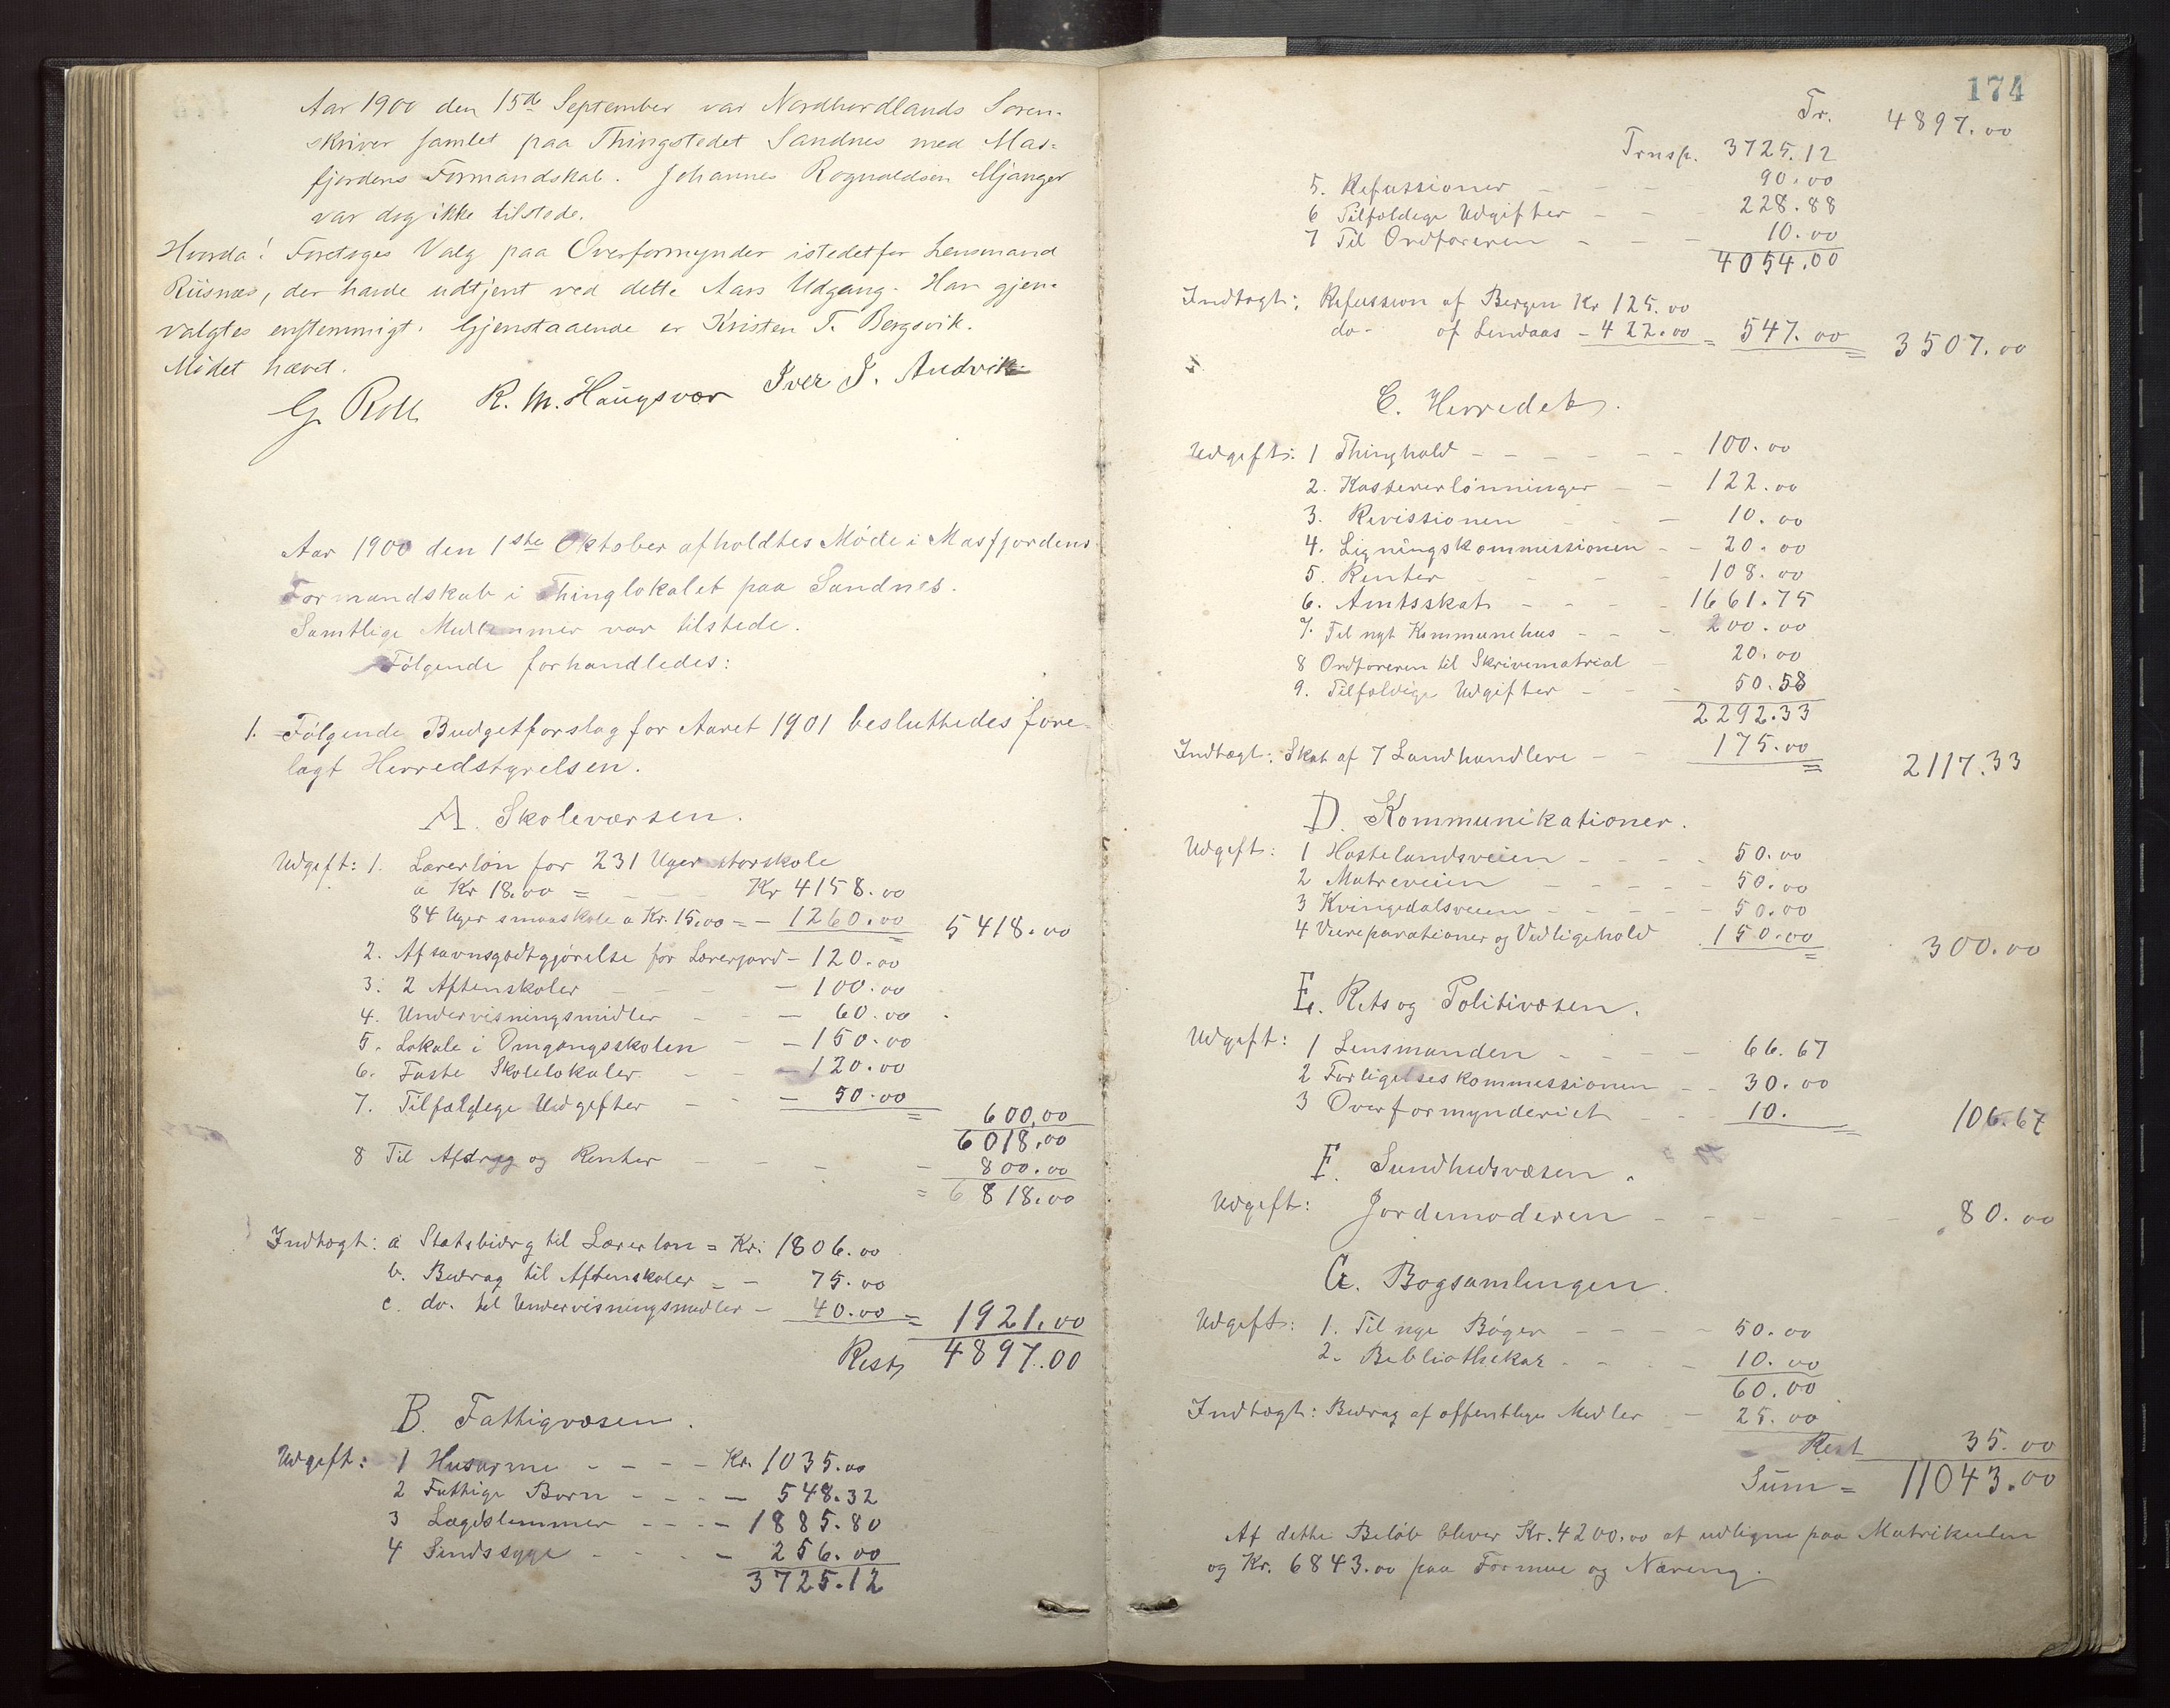 Aar 1900 den 15de September var Nordhordlands Soren-
skriver samlet paa Thingstedet Sandnes med Mas=
fjordens Formandskab. Johannes Rognaldsen Mjanger
var dog ikke tilstede.
Hvorda! Foretoges Valg paa Overformynder istedetfor Lensmand
Riisnæs, der havde udtjent ved dette Aars Udgang. Han gjen-
valgtes enstemmigt. Gjenstaaende er Kristen T. Bergsvik.
Mødet hævet.
G Roll R. M. Haugsvær Iver J. Andvik
Aar 1900 den 1ste Oktober afholdtes Møde i Masfjordens
Formandskab i Thinglokalet paa Sandnes.
Samtlige Medlemmer var tilstede.
Følgende forhandledes:
1. Følgende Budgetforslag for Aaret 1901 besluttedes fore-
lagt Herredstyrelsen.
A. Skolevæsen.
Udgift: 1. Lærerløn for 231 Uger storskole
a Kr 18.00 = Kr 4158.00
84 Uger smaaskole a Kr. 15.00 = - 1260.00 = 5418.00
2. Afsavnsgodtgjørelse for Lærerjord - 120.00
3. 2 Aftenskoler - 100.00
4. Undervisningsmidler - - 60.00
5. Lokale i Omgangsskolen - - 150.00
6. Faste Skolelokaler - - - 120.00
7. Tilfældige Udgifter - - - 50.00 = 600.00
6018.00
8 Til Afdrag og Renter - - - - 800.00
= 6818.00
Indtægt: a Statsbidrag til Lærerløn = Kr. 1806.00
b. Bidrag til Aftenskoler = - 75.00
c. do. til Undervisningsmidler - 40.00 = 1921.00
Rest 4897.00
B. Fattigvæsen.
Udgift: 1 Husarme - - - - Kr. 1035.00
2 Fattige Børn - - - - 548.32
3 Lægdslemmer - - - - 1885.80
4 Sindssyge - - - - 256.00
3725.12
174
Tr. 4897.00
Trnsp. 3725.12
5. Refussioner - - - 90.00
6 Tilfældige Udgifter - - - 228.88
7 Til Ordføreren - - - 10.00
4054.00
Indtægt: Refussion af Bergen Kr 125.00
do- af Lindaas - 422.00 = 547.00 = 3507.00
C. Herredet.
Udgift: 1 Thinghold - - - - - - 100.00
2. Kassererlønninger - - 122.00
3. Revissionen - - - 10.00
4. Ligningskommissionen - - 20.00
5. Renter - - - - 108.00
6. Amtsskat - - - - 1661.75
7. Til nyt Kommunehus - - - 200.00
8 Ordføreren til Skrivematrial - 20.00
9. Tilfældige Udgifter - - - 50.58
2292.33
Indtægt: Skat af 7 Landhandlere - - 175.00 = 2117.33
D. Kommunikationer.
Udgift: 1 Hostelandsveien - - - - 50.00
2 Matreveien - - - - - 50.00
3 Kvingedalsveien - - - - - 50.00
4 Veireparationer og Vedligehold 150.00 = 300.00
E. Rets og Politivæsen.
Udgift: 1 Lensmanden - - - - 66.67
2 Forligelseskommissionen - - 30.00
3 Overformynderiet - - 10. = 106.67
F. Sundhedsvæsen.
Udgift: Jordemoderen - - - - - - 80.00
G. Bogsamlingen.
Udgift: 1. Til nye Bøger - - - 50.00
2. Bibliothekar - - - - 10.00
60.00
Indtægt: Bidrag af offentlige Midler - 25.00
Rest 35.00
Sum = 11043.00
Af dette Beløb bliver Kr. 4200.00 at udligne paa Matrikulen
og Kr. 6843.00 paa Formue og Næring.